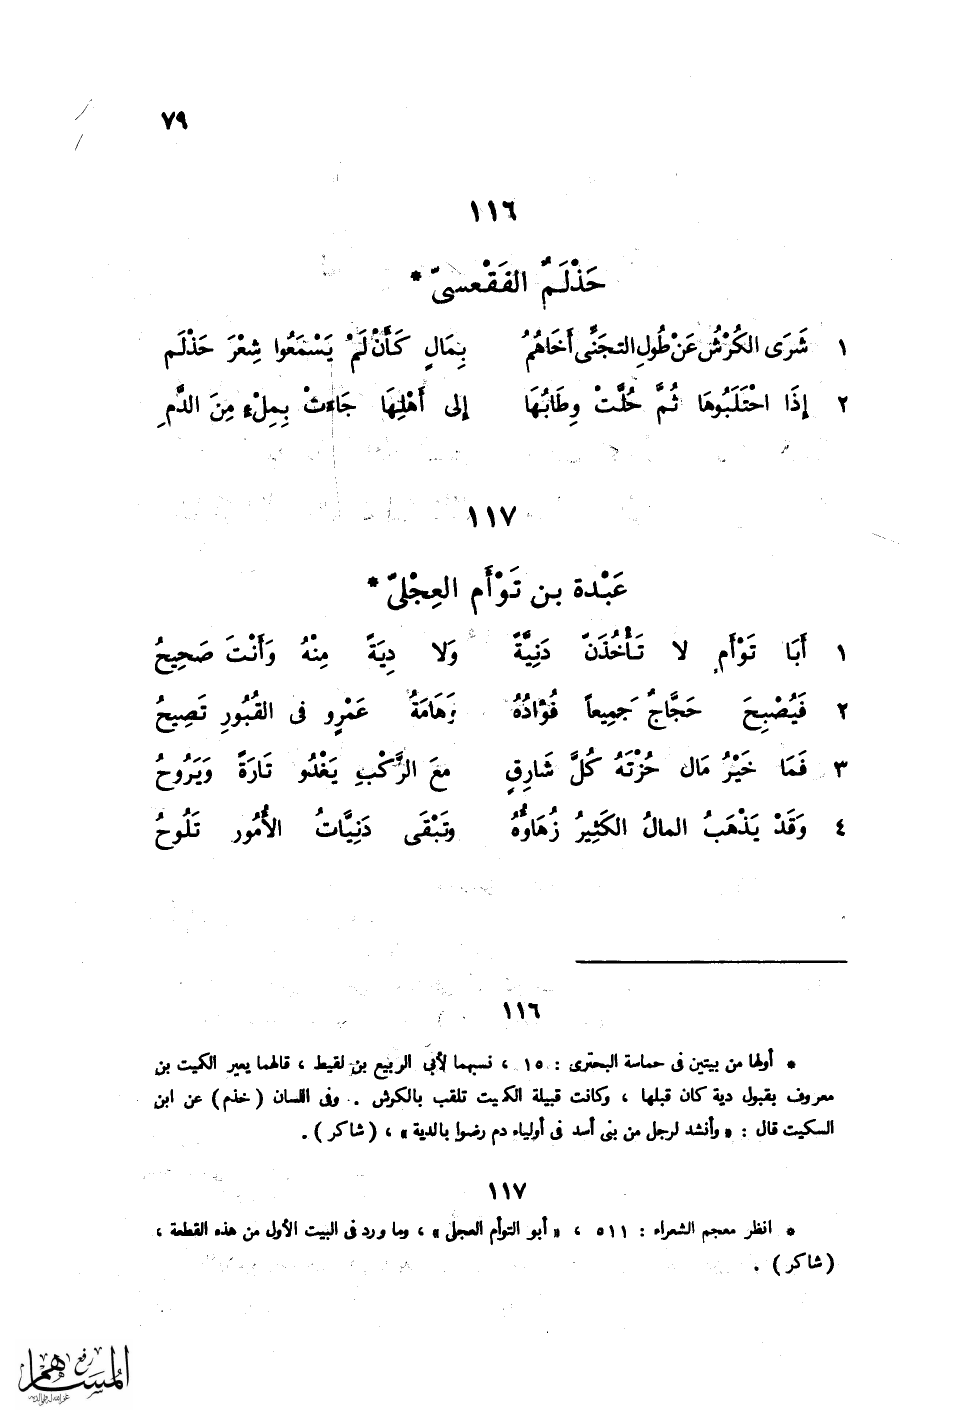 ٧٩
١١٦
حَذْلَمٌ الفَقْعسىّ *
١ شَرَى الكُرْشُ عَنْ طُولِ التجَنِّى أَخَاهُمُ بِمَالٍ كَأَنْ لَمْ يَسْمَعُوا شِعْرَ حَذْلَمِ
٢ إِذَا احْتَلَبُوهَا ثُمَّ حُلَّتْ وِطَابُهَا إلى أَهْلِهَا جَاءَتْ بِمِلْءٍ مِنَ الدَّمِ
١١٧
عَبْدة بن تَوْأَم العِجْلىّ *
١ أَبَا تَوْأَمٍ لا تَأْخُذَنّ دَنِيَّةً وَلا دِيَةً مِنْهُ وَأَنْتَ صَحِيحُ
٢ فَيُصْبِحَ حَجَّاجٌ جَمِيعاً فُؤَادُهُ وَهَامَةُ عَمْرٍو فى القُبُورِ تَصِيحُ
٣ فَمَا خَيْرُ مَال حُزْتَهُ كُلَّ شَارِقٍ معَ الرَّكْبِ يَغْدُو تَارَةً وَيَرُوحُ
٤ وَقَدْ يَذْهَبُ المالُ الكَثِيرُ زُهَاوُهُ وتَبْقَى دَنِيَّاتُ الأُمُور تَلُوحُ
١١٦
* أولها من بيتين فى حماسة البحترى : ١٥ ، نسبهما لأبى الربيع بن لقيط ، قالهما يعير الكميت بن
معروف بقبول دية كان قبلها ، وكانت قبيلة الكميت تلقب بالكرش . وفى اللسان (خذم) عن ابن
السكيت قال : « وأنشد لرجل من بنى أسد فى أولياء دم رضوا بالدية » ، (شاكر) .
١١٧
* انظر معجم الشعراء : ٥١١ ، « أبو التوأم العجلى » ، وما ورد فى البيت الأول من هذه القطعة ،
(شاكر) .